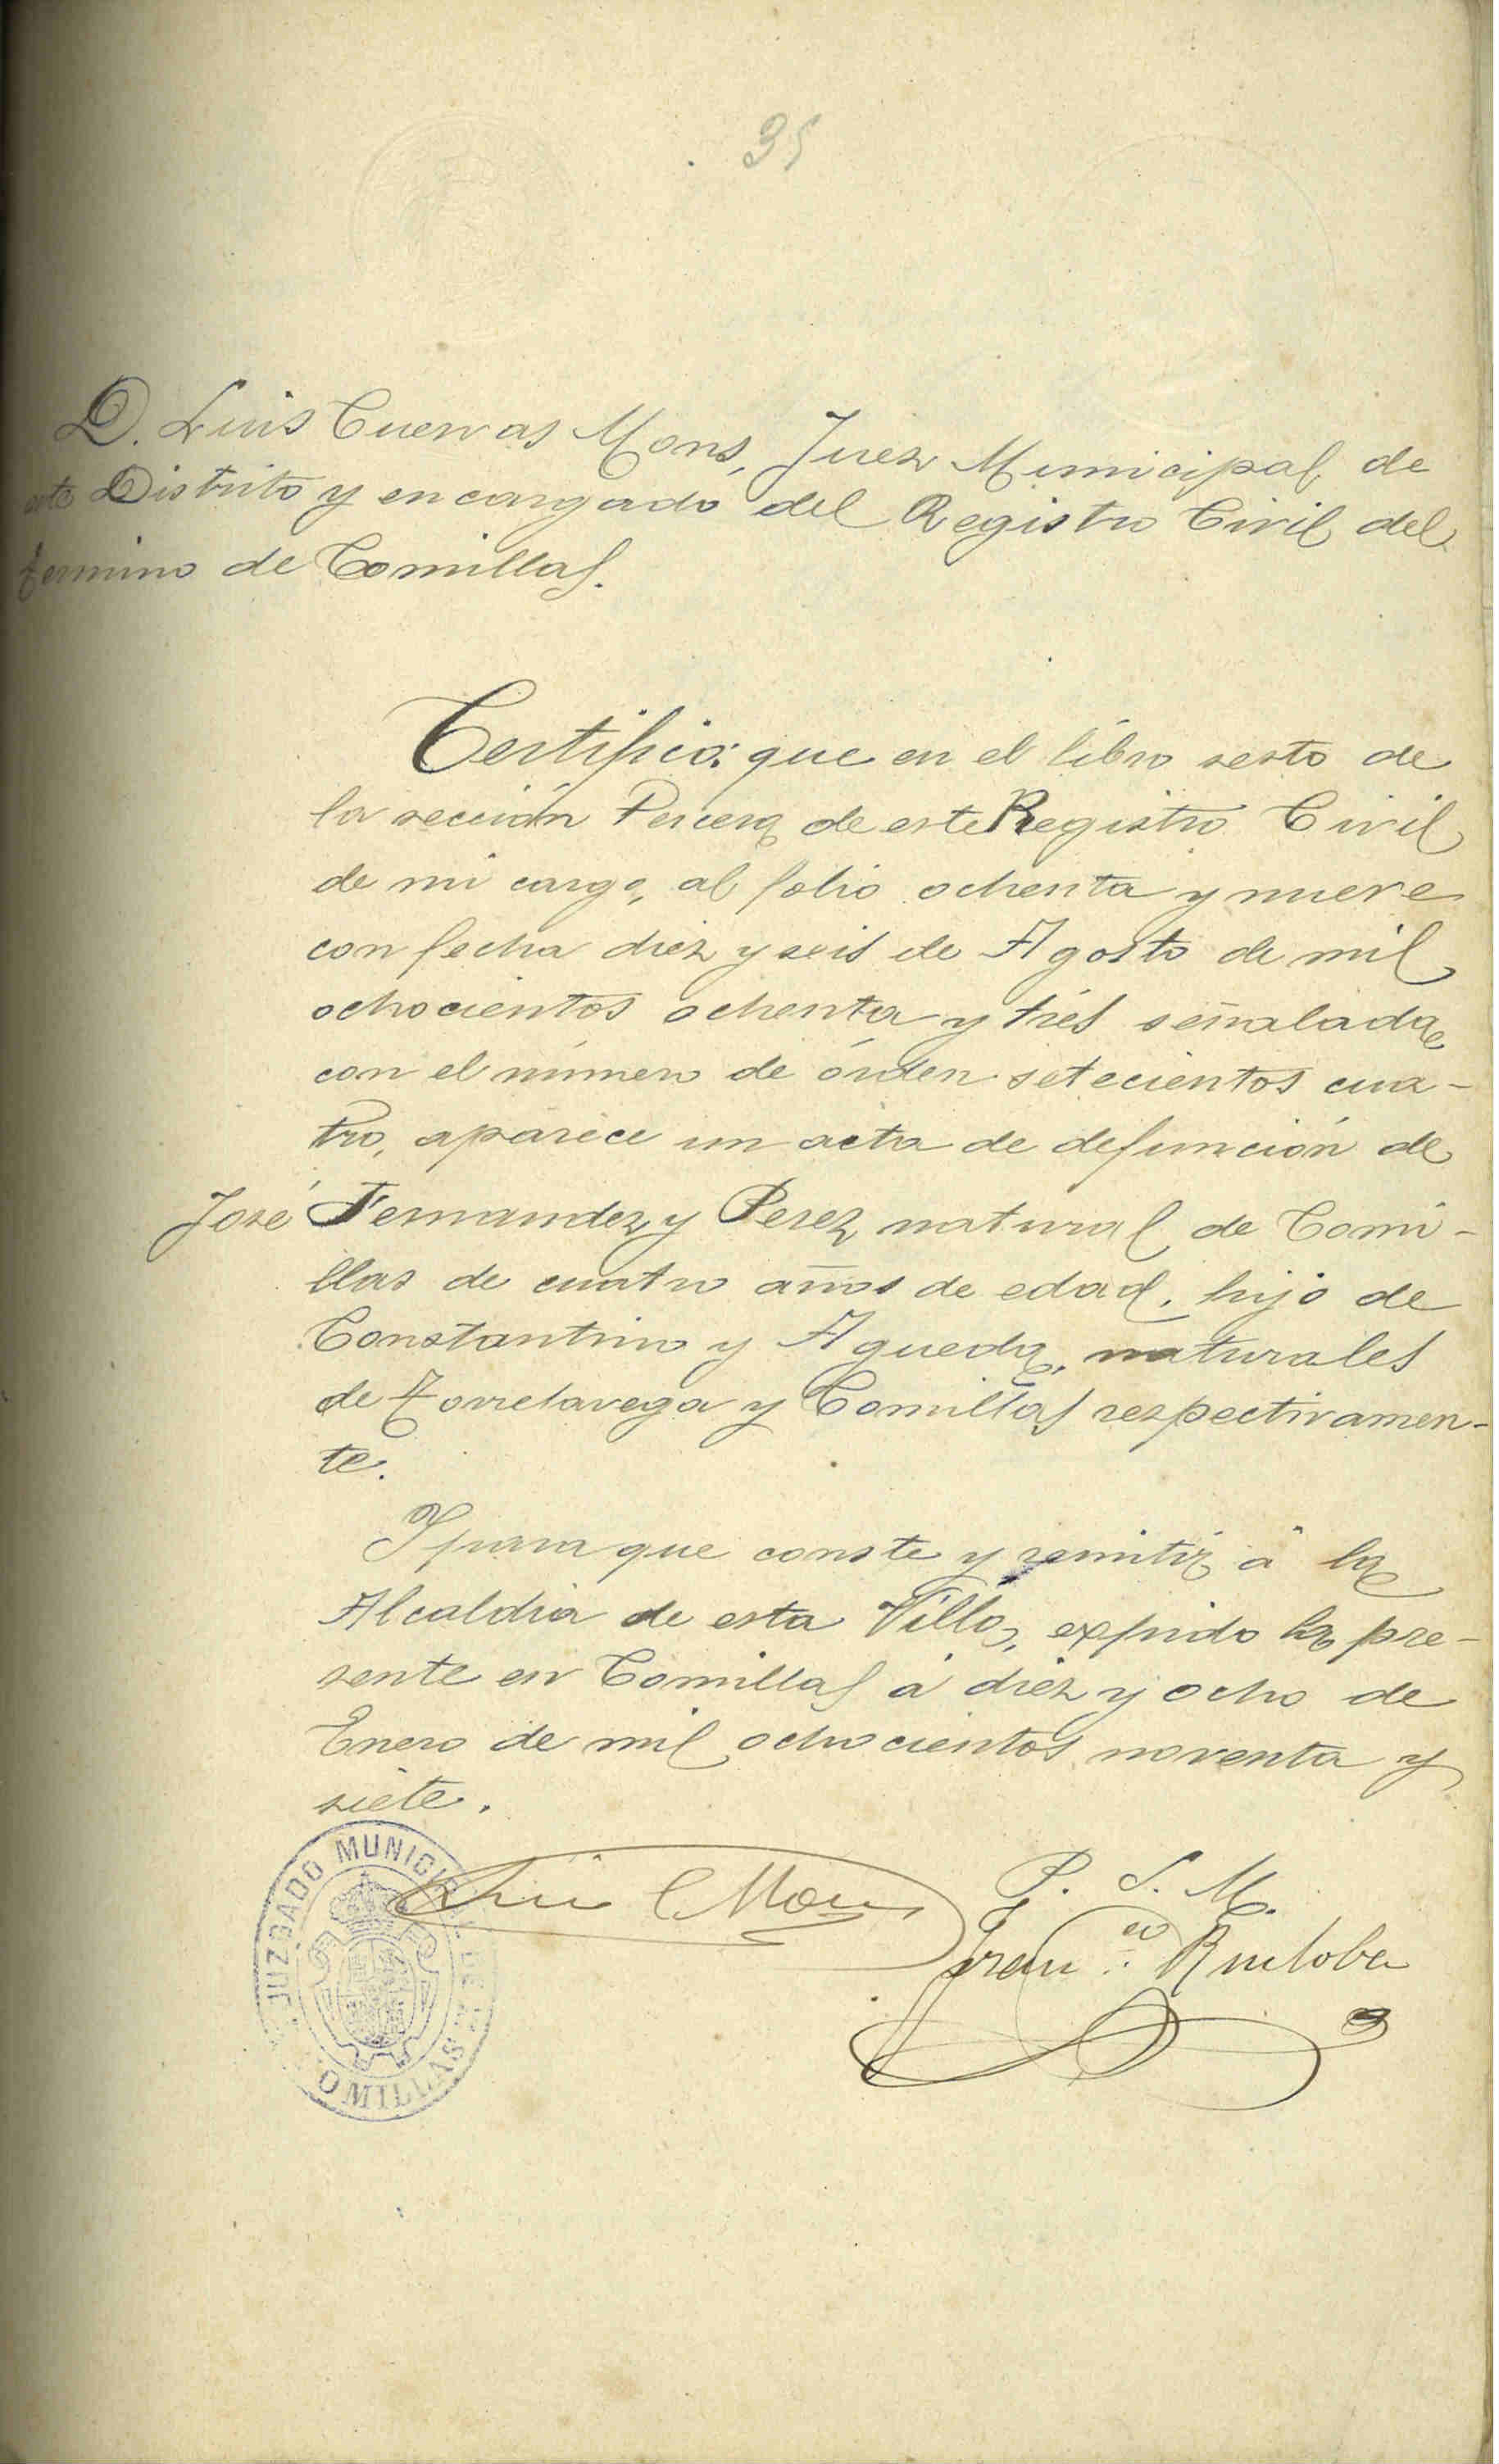 35
D. Luis Cuervas Mons, Juez Municipal de
este Distrito y encargado del Registro Civil del
termino de Comillas.
Certifico: que en el libro sesto de
la sección Tercera de este Registro Civil
de mi cargo, al folio ochenta y nueve
con fecha diez y seis de Agosto de mil
ochocientos ochenta y trés señalada
con el número de órden setecientos cua-
tro, aparece un acta de defunción de
José Fernandez y Perez natural de Comi-
llas de cuatro años de edad, hijo de
Constantino y Agueda, naturales
de Torrelavega y Comillas respectivamen-
te.
Y para que conste y remitir á la
Alcaldia de esta Villa, expido la pre-
sente en Comillas á diez y ocho de
Enero de mil ochocientos noventa y
siete.
JUZGADO MUNICIPAL DE COMILLAS
Luis C Mons
P. S. M.
Fran.co Ruiloba